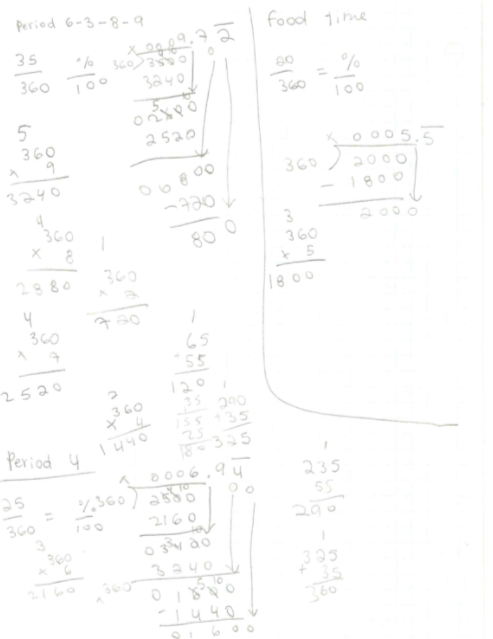 Period 6-3-8-9
35/360 %/100
× 0089.72
360)3500
3240
02600
2520
00800
-720
80 0
5
360
× 9
3240
4
360
× 8
2880
1
360
× 2
720
4
360
× 7
2520
2
360
× 4
1440
1
65
55
120
35
155
25
180
1
290
+35
325
Food time
20/360 = %/100
× 0005.5
360)2000
- 1800
2000
3
360
× 5
1800
Period 4
25/360 = %/100
× 0006.94
360)2500
2160
03400
3240
01600
-1440
01600
3
360
× 6
2160
× 360
1
235
55
290
1
325
+ 35
360